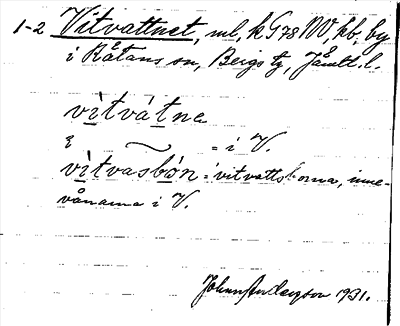 1-2 Vitvattnet, ml, k G78 NV, kb, by
i Råtans sn, Bergs tg, Jämtl. l.
vìtvátne
i ~ = i V.
vìtvasbón = vitvattsborna, inne-
vånarna i V.
Johan Anderson 1931.